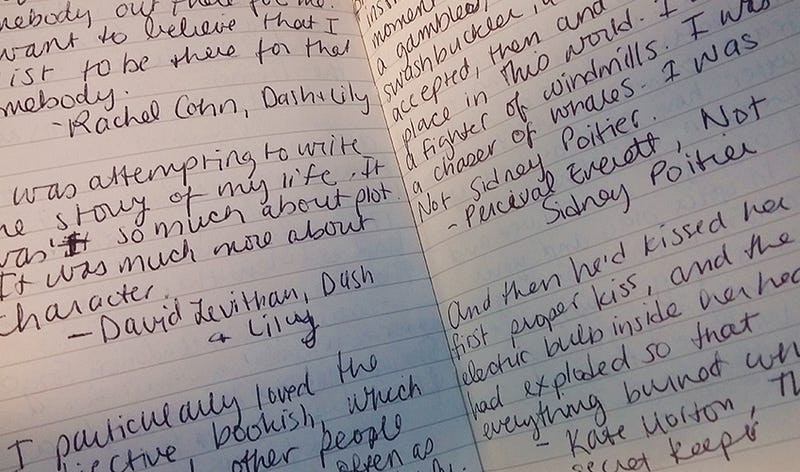 nebody out there for me.
want to believe that I
ist to be there for that
mebody.
- Rachel Cohn, Dash + Lily
was attempting to write
he story of my life. It
was't so much about plot.
It was much more about
character.
- David Levithan, Dash
+ Lily
I particularly loved the
jective, bookish, which
other people
often as
moment
a gambler,
swashbuckler
accepted, then and
place in this world. I
a fighter of windmills. I was
a chaser of whales. I was
Not Sidney Poitier.
- Percival Everett, Not
Sidney Poitier
And then he'd kissed her
first proper kiss, and the
electric bulb inside her hea
had exploded so that
everything burnot wh
- Kate Morton, Th
secret keeper